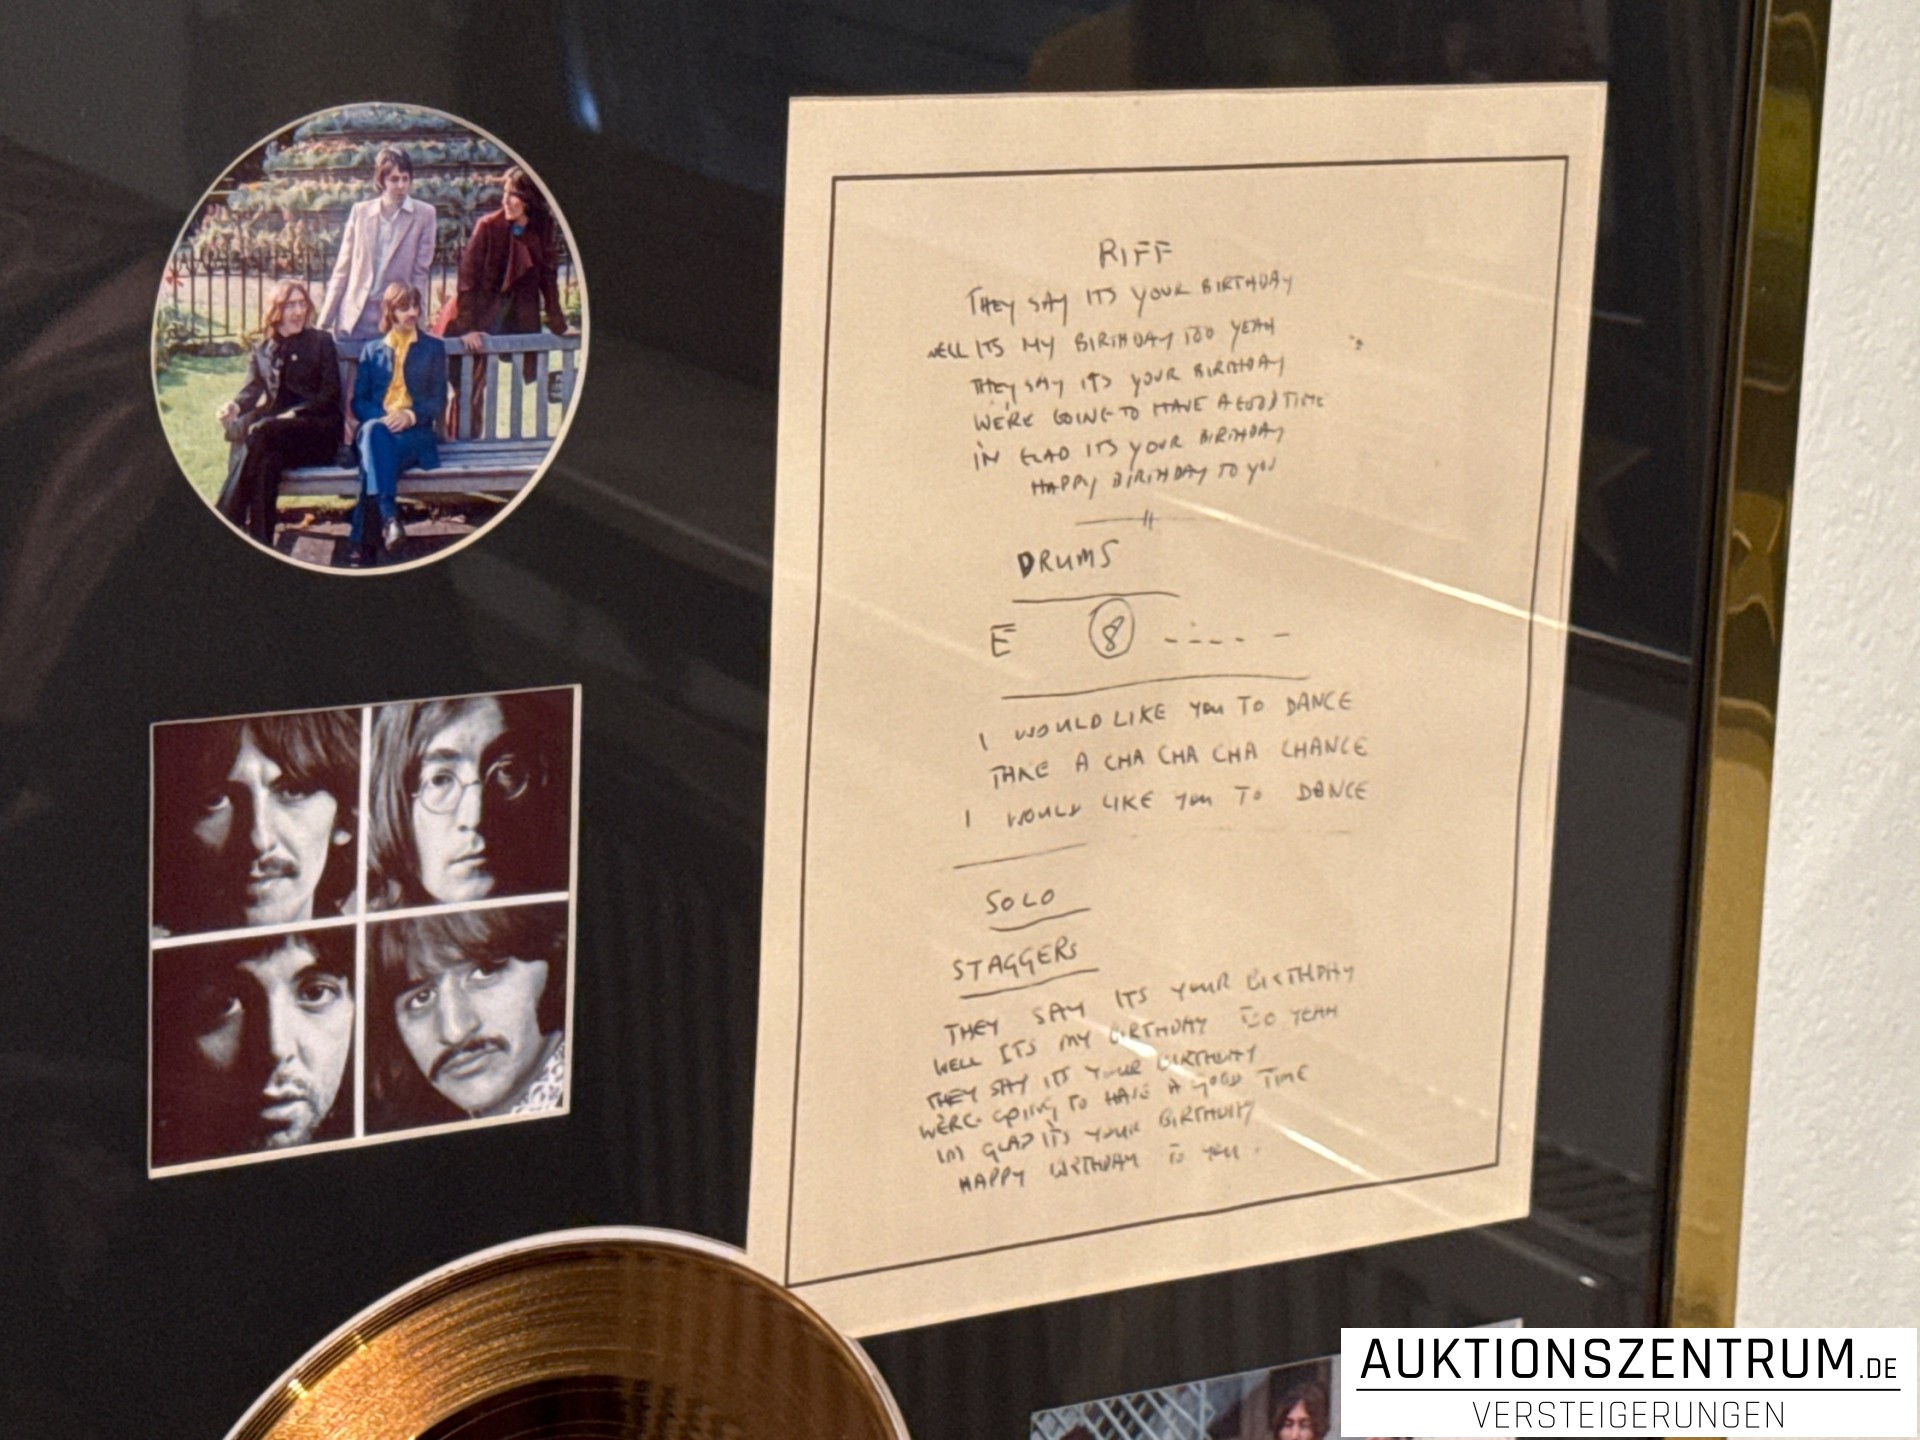 RIFF
THEY SAY ITS YOUR BIRTHDAY
WELL ITS MY BIRTHDAY TOO YEAH
THEY SAY ITS YOUR BIRTHDAY
WE'RE GOING TO HAVE A GOOD TIME
I'M GLAD ITS YOUR BIRTHDAY
HAPPY BIRTHDAY TO YOU
DRUMS
E 8
I WOULD LIKE YOU TO DANCE
TAKE A CHA CHA CHA CHANCE
I WOULD LIKE YOU TO DANCE
SOLO
STAGGERS
THEY SAY ITS YOUR BIRTHDAY
WELL ITS MY BIRTHDAY TOO YEAH
THEY SAY ITS YOUR BIRTHDAY
WERE GOING TO HAVE A GOOD TIME
IM GLAD IT'S YOUR BIRTHDAY
HAPPY BIRTHDAY TO YOU.
AUKTIONSZENTRUM.DE
VERSTEIGERUNGEN